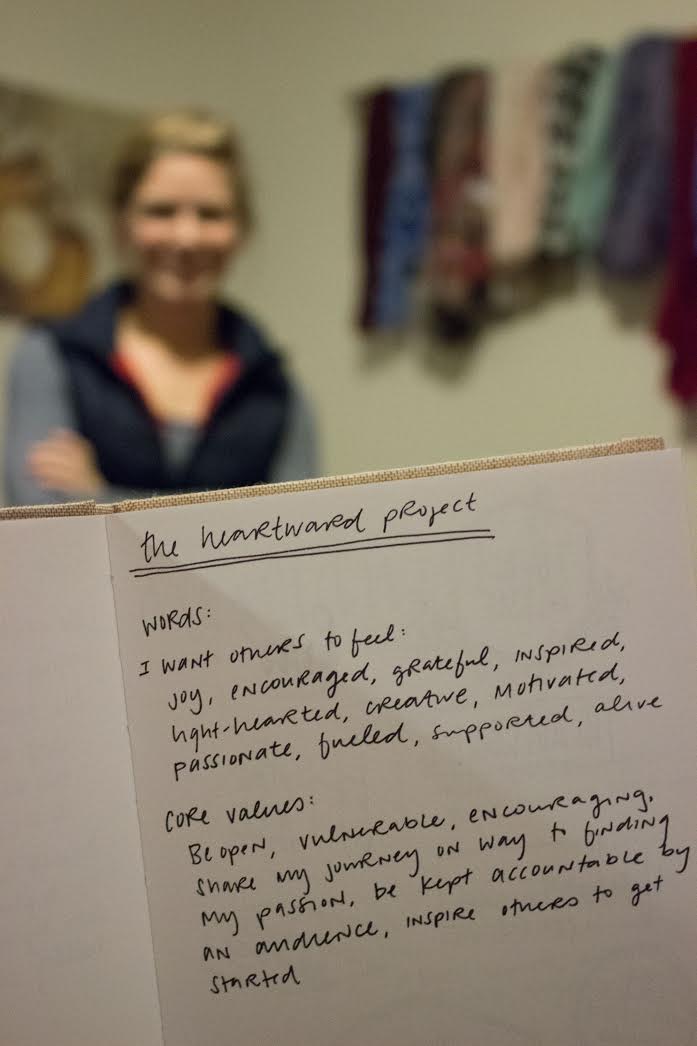 the heartward project
WORDS:
I want others to feel:
joy, encouraged, grateful, inspired,
light-hearted, creative, motivated,
passionate, fueled, supported, alive
Core values:
Be open, vulnerable, encouraging,
share my journey on way to finding
my passion, be kept accountable by
an audience, inspire others to get
started